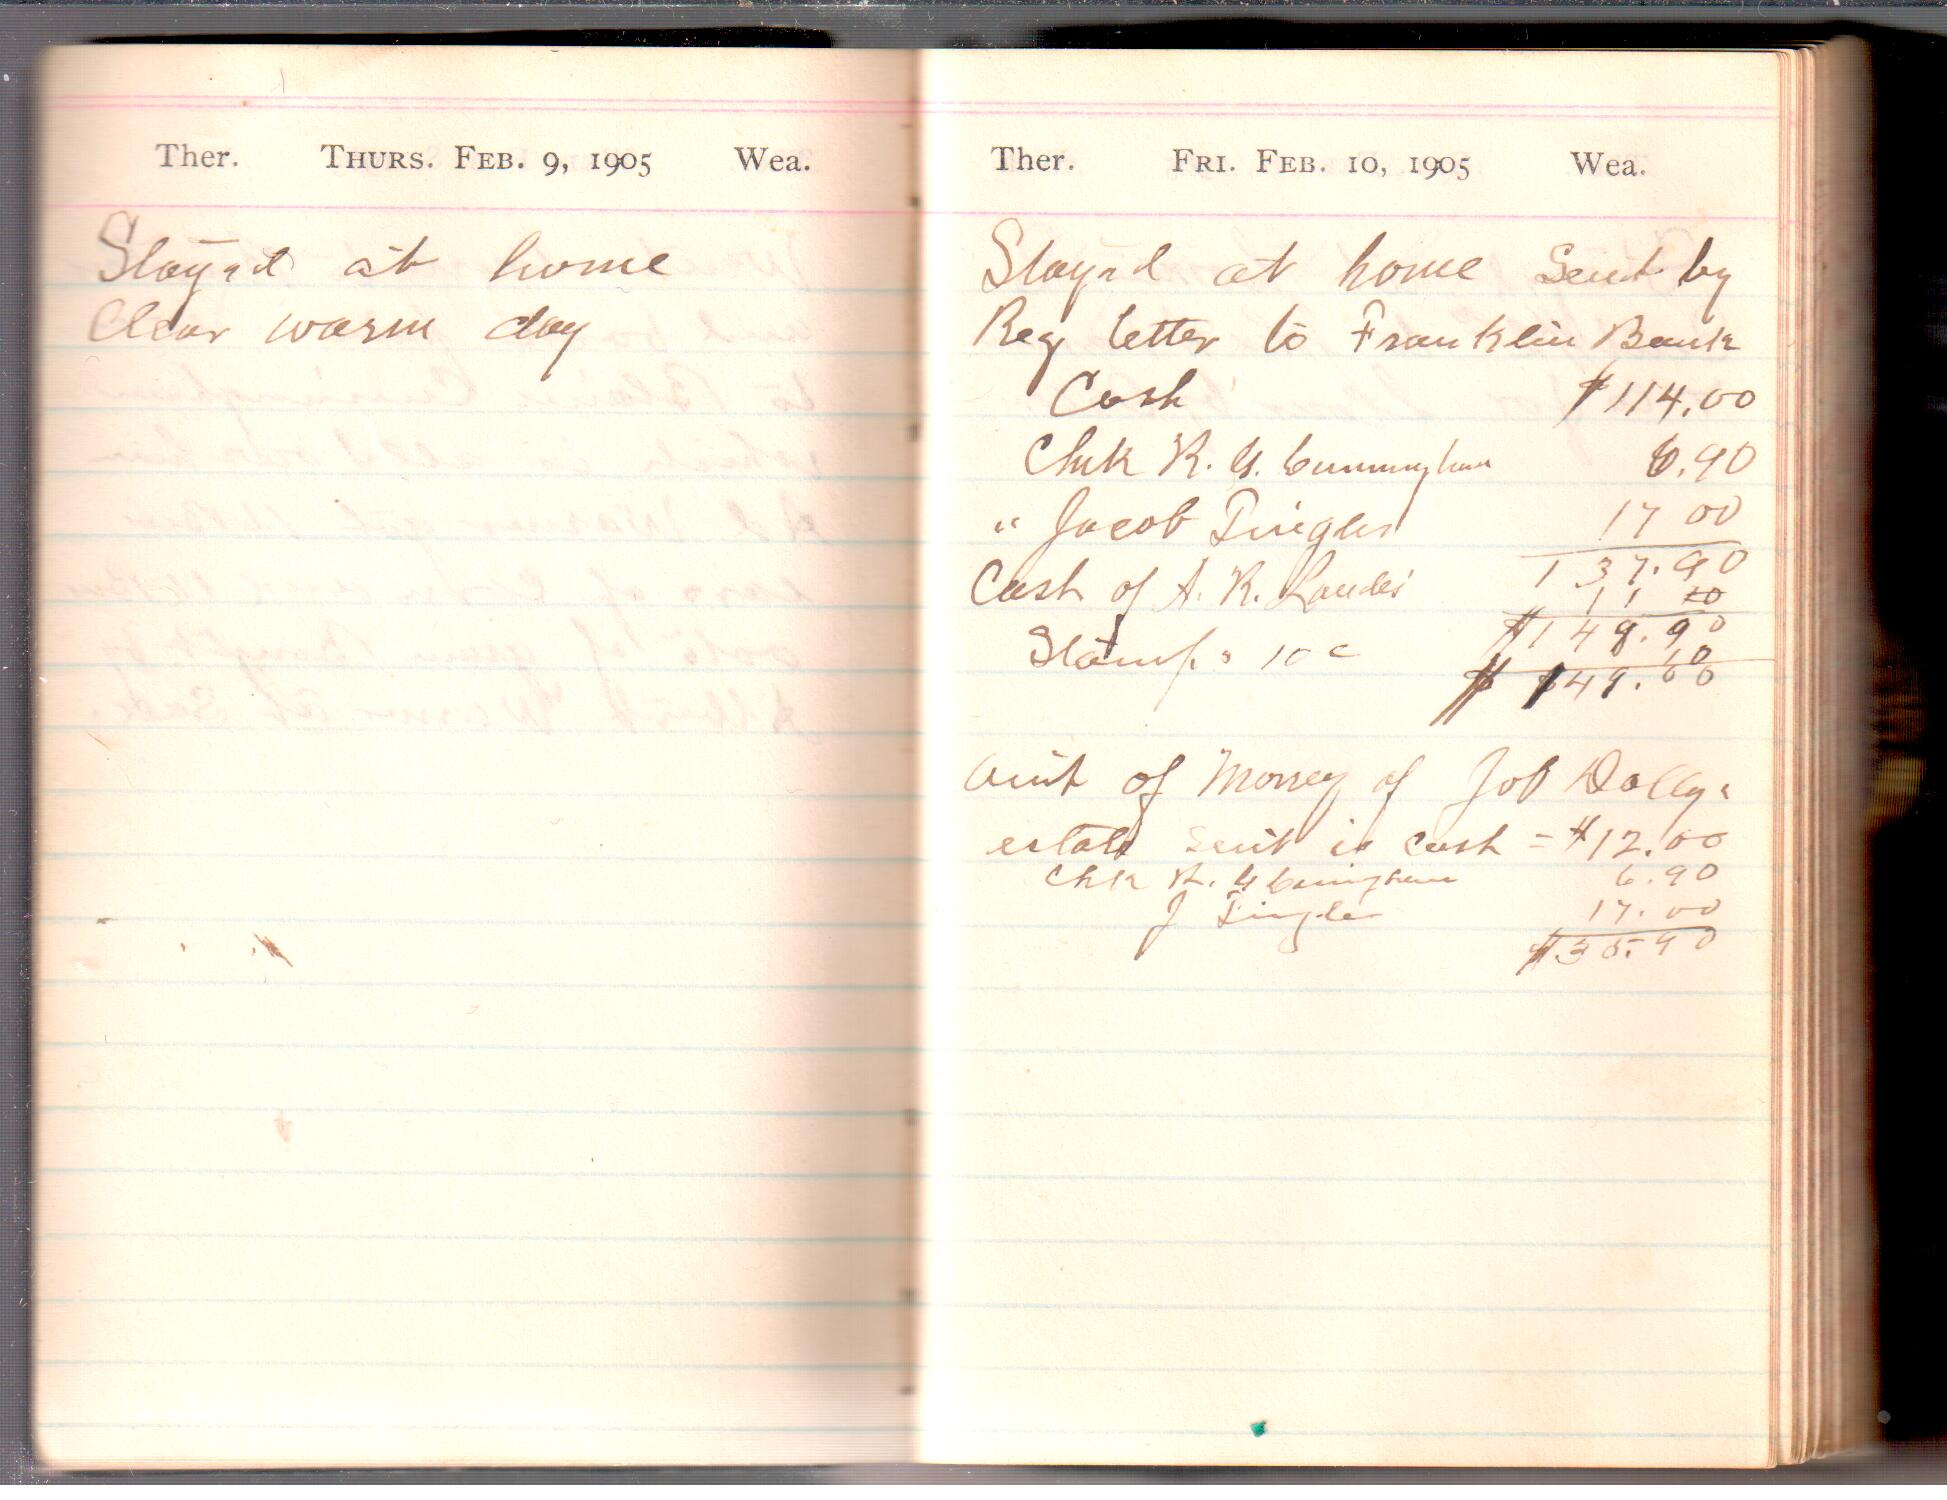 Ther. THURS. FEB. 9, 1905 Wea.
Stayed at home
Clear warm day
Ther. FRI. FEB. 10, 1905 Wea.
Stayed at home Sent by
Reg letter to Franklin Bank
Cash $114.00
Chek R. G. Cunningham 6.90
" Jacob Tingler 17 00
137.90
Cash of A. R. Landes 11 00
$148.90
Stamps 10 c 10
Amt of Money of Job Dollys
estate sent is cash = $12.00
Chk R. G Cuningham 6.90
J Tingler 17.00
$35.90